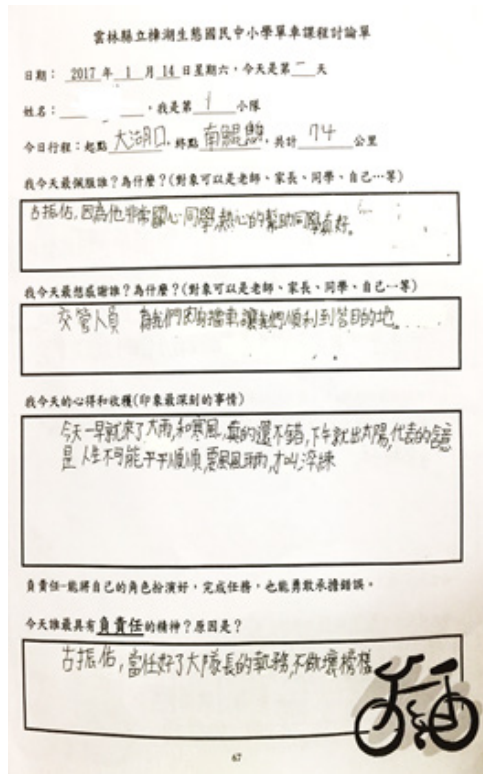 雲林縣立樟湖生態國民中小學單車課程討論單
日期： 2017 年 1 月 14 日星期六，今天是第 一 天
姓名： ，我是第 1 小隊
今日行程：起點 大湖口，終點 南鯤鯓，共計 74 公里
我今天最佩服誰？為什麼？(對象可以是老師、家長、同學、自己…等)
古振佑，因為他非常關心同學，熱心的幫助同學真好。
我今天最想感謝誰？為什麼？(對象可以是老師、家長、同學、自己…等)
交管人員 為我們 擋車，讓我們順利到答目的地。
我今天的心得和收穫(印象最深刻的事情)
今天一早就來了大雨，和寒風，真的還不錯，下午就出太陽，代表的含意
是 人生不可能平平順順，要風風雨雨，才叫淬練
負責任-能將自己的角色扮演好，完成任務，也能勇敢承擔錯誤。
今天誰最具有負責任的精神？原因是？
古振佑，當任好了大隊長的執務，不做壞榜樣
67